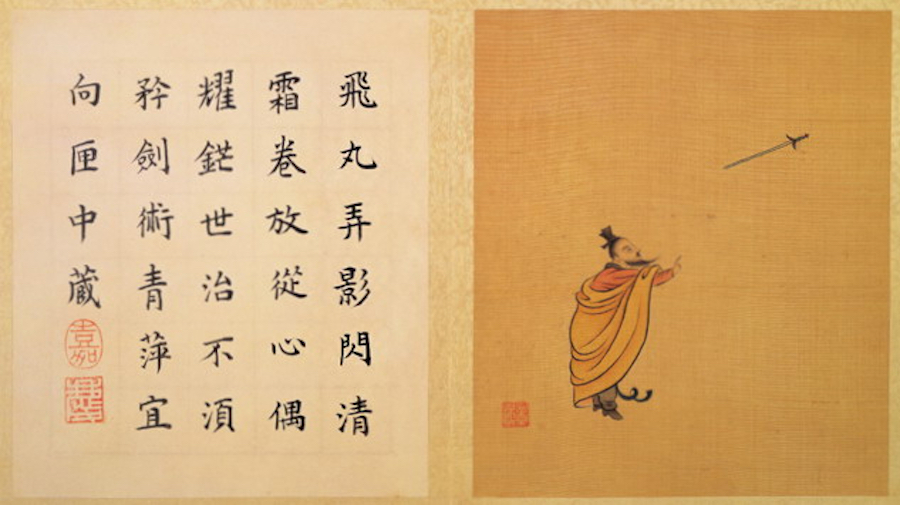 飛丸弄影閃清
霜卷放從心偶
耀鋩世治不須
矜劍術青萍宜
向匣中藏
嘉